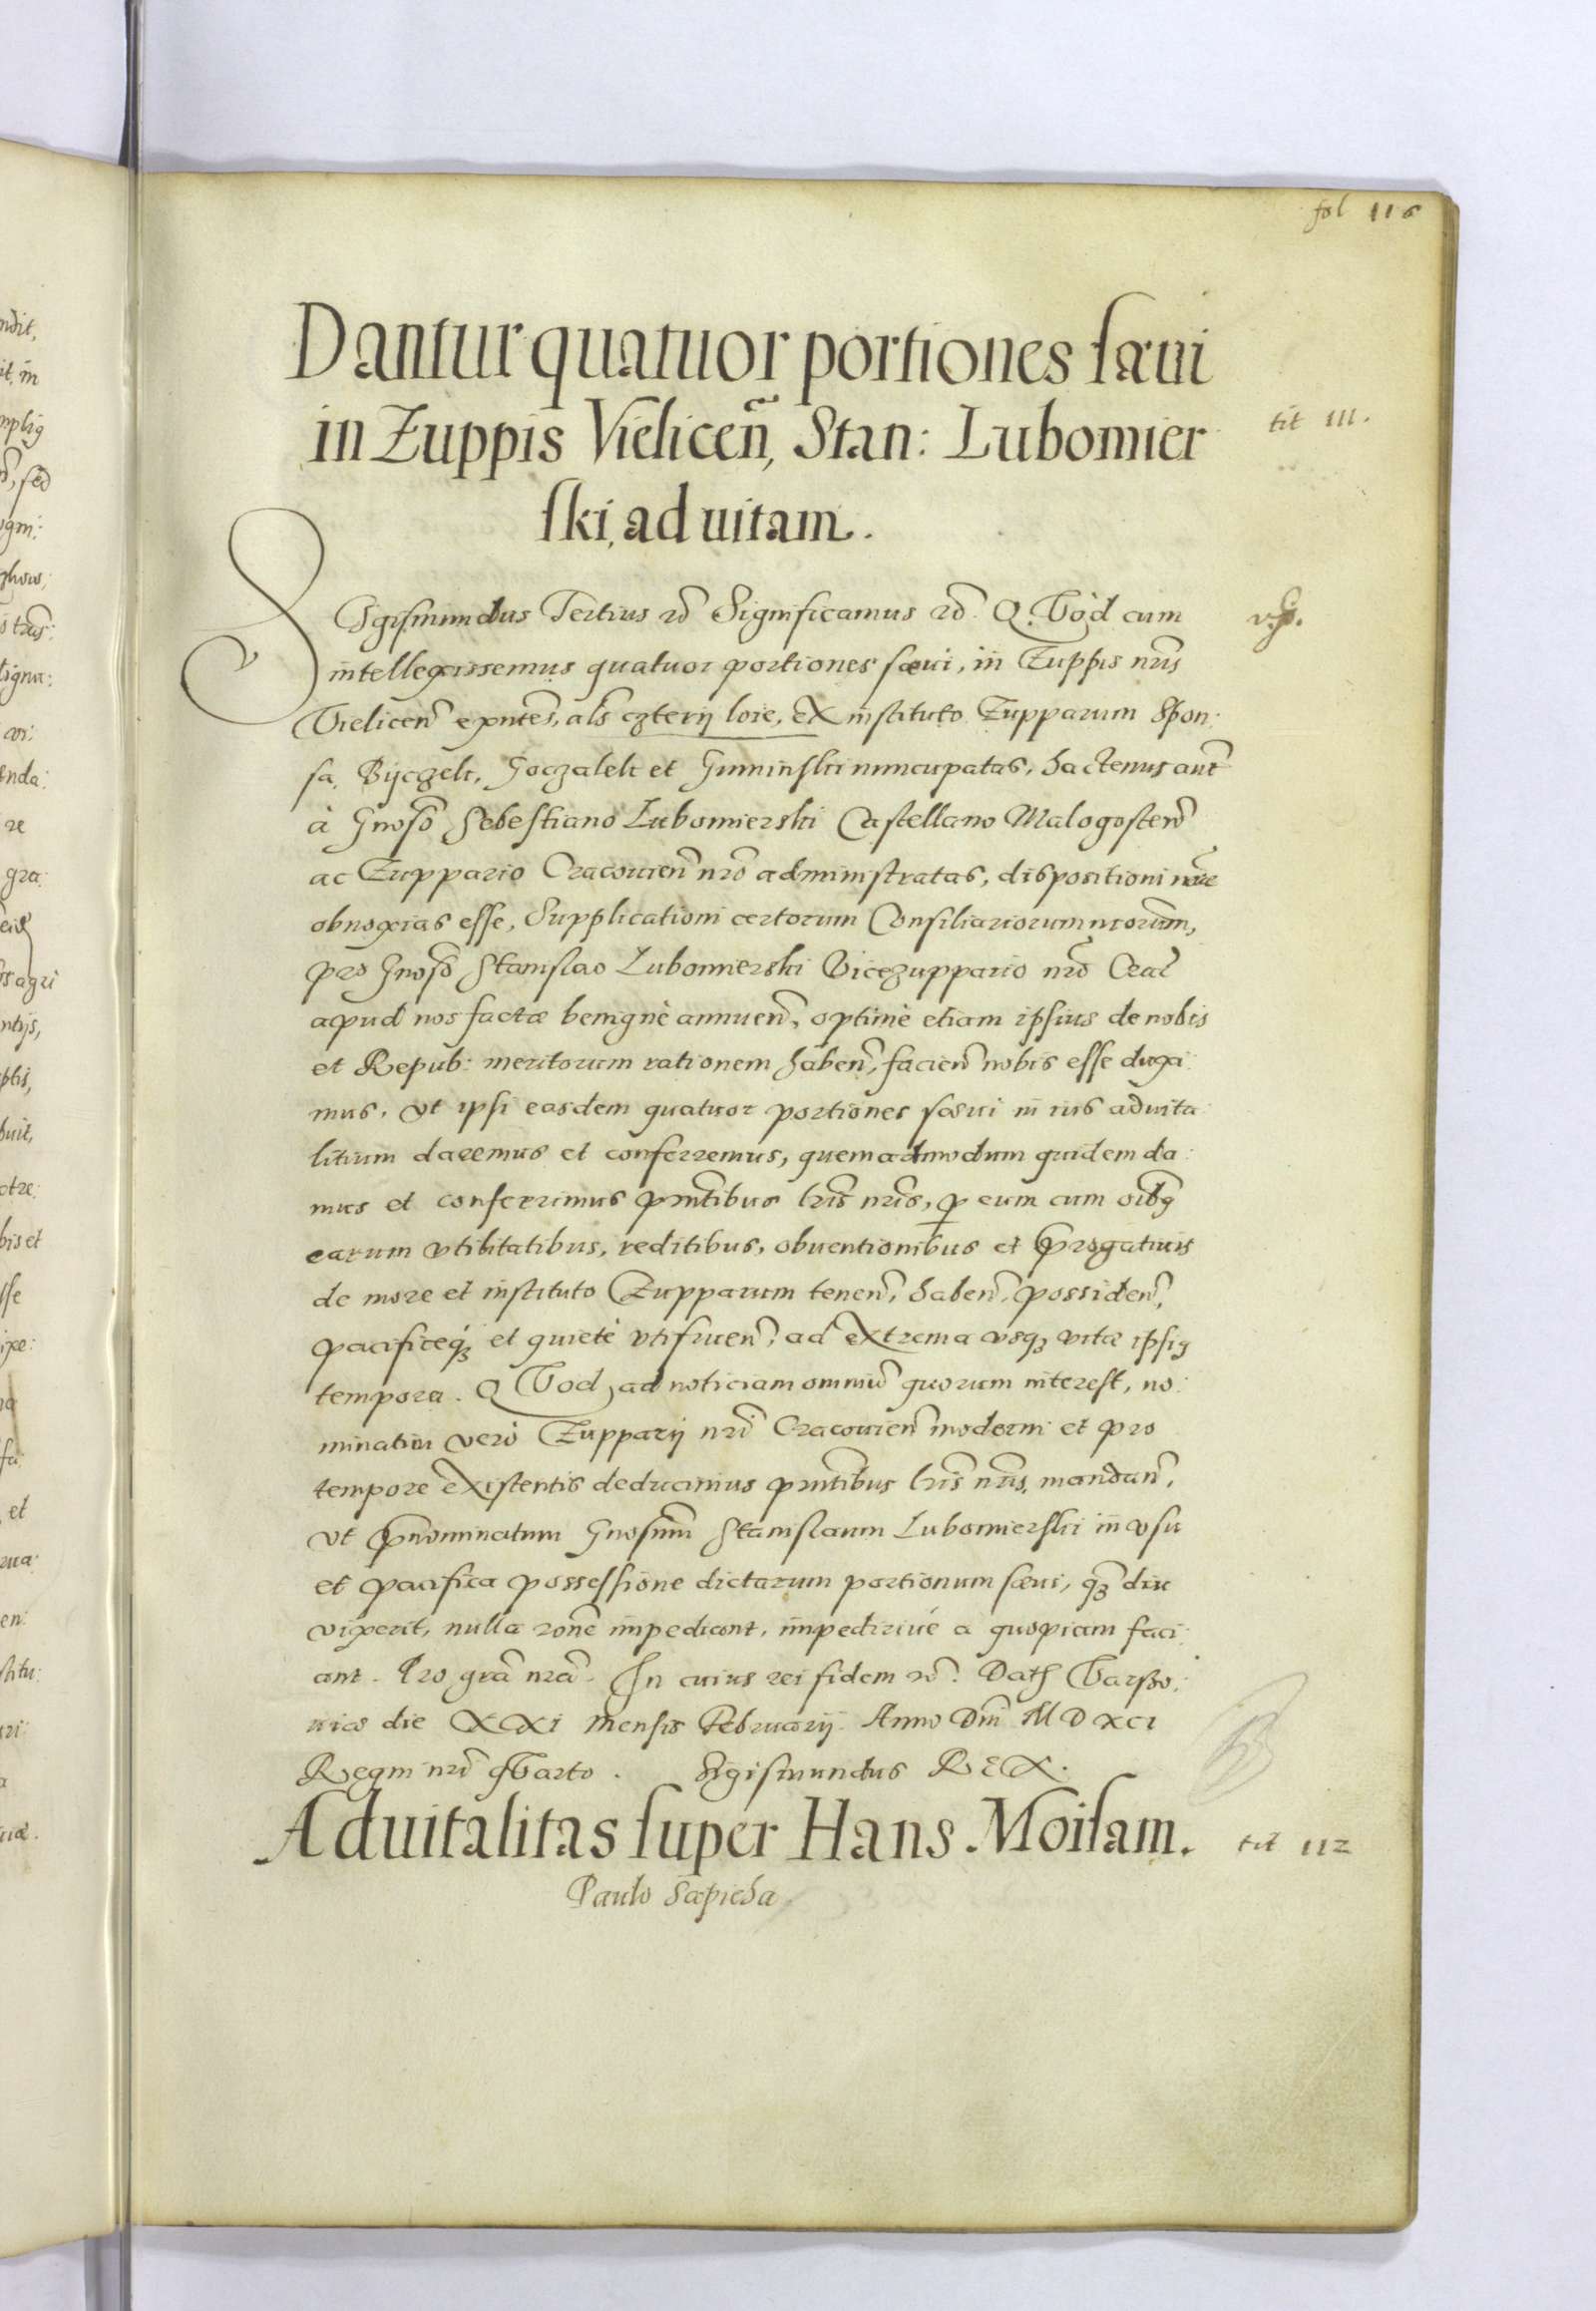 fol 116
Dantur quatuor portiones sæui
in Zuppis Vielicen̄, Stan: Lubomier
tit 111.
ski, ad uitam.
SIgismundus Tertius etc̃ Significamus etc̃. Quòd cum
intellexissemus quatuor portiones sæui, in Zuppis nr̃is
Vielicen̄ exñtes, al̃s czterij loie, ex instituto Zupparum Spon:
sa, Byczek, Goczalek et Guminski nuncupatas, hactenus aut̃
à Gnoso Sebestiano Lubomierski Castellano Malogosten̄
ac Zuppario Cracouien̄ nr̃o administratas, dispositioni nr̃æ
obnoxias esse, Supplicationi certorum Consiliariorum nr̃orum,
pro Gnoso Stanislao Lubomierski Vicezuppario nr̃o Crac̃
apud nos factæ benignè annuen̄, optimè etiam ipsius de nobis
et Repub: meritorum rationem haben̄, facien̄ nobis esse duxi:
mus, vt ipsi easdem quatuor portiones sæui in ius aduita:
litium daremus et conferremus, quemadmodum quidem da:
mus et conferrimus pñtibus lr̃is nr̃is, p̱ eum cum oib9
earum vtilitatibus, reditibus, obuentionibus et p̃rogatiuis
de more et instituto Zupparum tenen̄, haben̄, possiden̄,
pacificeq́ꝫ et quietè vtifruen̄, ad extrema vsqꝫ vitæ ipsi9
tempora. Quod ad noticiam omniũ quorum interest, no:
minatim verò Zupparij nr̃i Cracouien̄ moderni et pro
tempore existentis deducimus pñtibus lr̃is nr̃is, mandan̄,
vt p̃nominatum Gnosum̃ Stanislaum Lubomierski in vsu
et pacifica possessione dictarum portionum sæui, qꝫ̃ diu
vixerit, nulla rõne impediant, impediriué a quopiam faci:
ant. Pro grã nr̃a. In cuius rei fidem etc̃. Dat̃ Varsso:
uiæ die XXI mensis Februarij. Anno Dñi MDXCI
Regni nr̃i qVarto. Sigismundus REX.
Aduitalitas super Hans Moisam.
tit 112
Paulo Sapieha